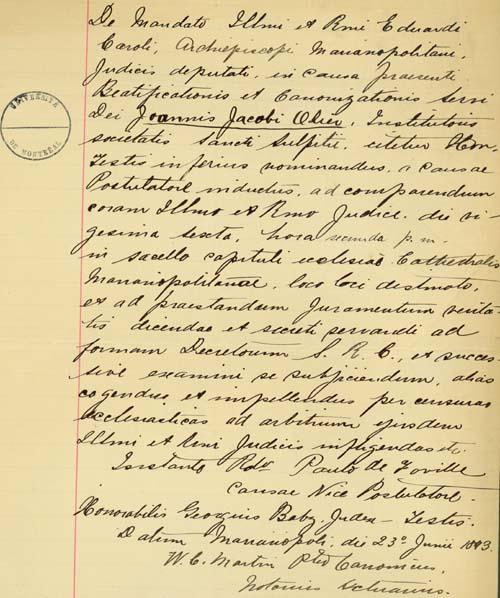 De Mandato Illmi et Rmi Eduardi
Caroli, Archiepiscopi Marianopolitani,
Judicis deputati, in causa praesenti
Beatificationis et Canonizationis Servi
Dei Joannis Jacobi Olier, Institutoris
societatis Sancti Sulpitii, citetur Hon.
Testis inferius nominandus, a causae
Postulatore inductus, ad comparendum
coram Illmo et Rmo Judice, die vi-
gesima sexta, hora secunda p.m.
in sacello capituli ecclesiae Cathedralis
Marianopolitanae, loco loci destinato,
et ad praestandum Juramentum verita-
tis dicendae et secreti servandi ad
formam Decretorum S. R. C., et succes-
sive examini se subjiciendum, alias
cogendus et impellendus per censuras
ecclesiasticas ad arbitrium ejusdem
Illmi et Rmi Judicis infligendas etc.
Instante Rdo Paulo de Foville
Causae Vice Postulatore.
Honorabilis Georgius Baby, Judex - Testis.
Datum Marianopoli, die 23a Junii 1893.
W. C. Martin Canonicus,
Notarius Actuarius.
UNIVERSITÉ
DE MONTRÉAL